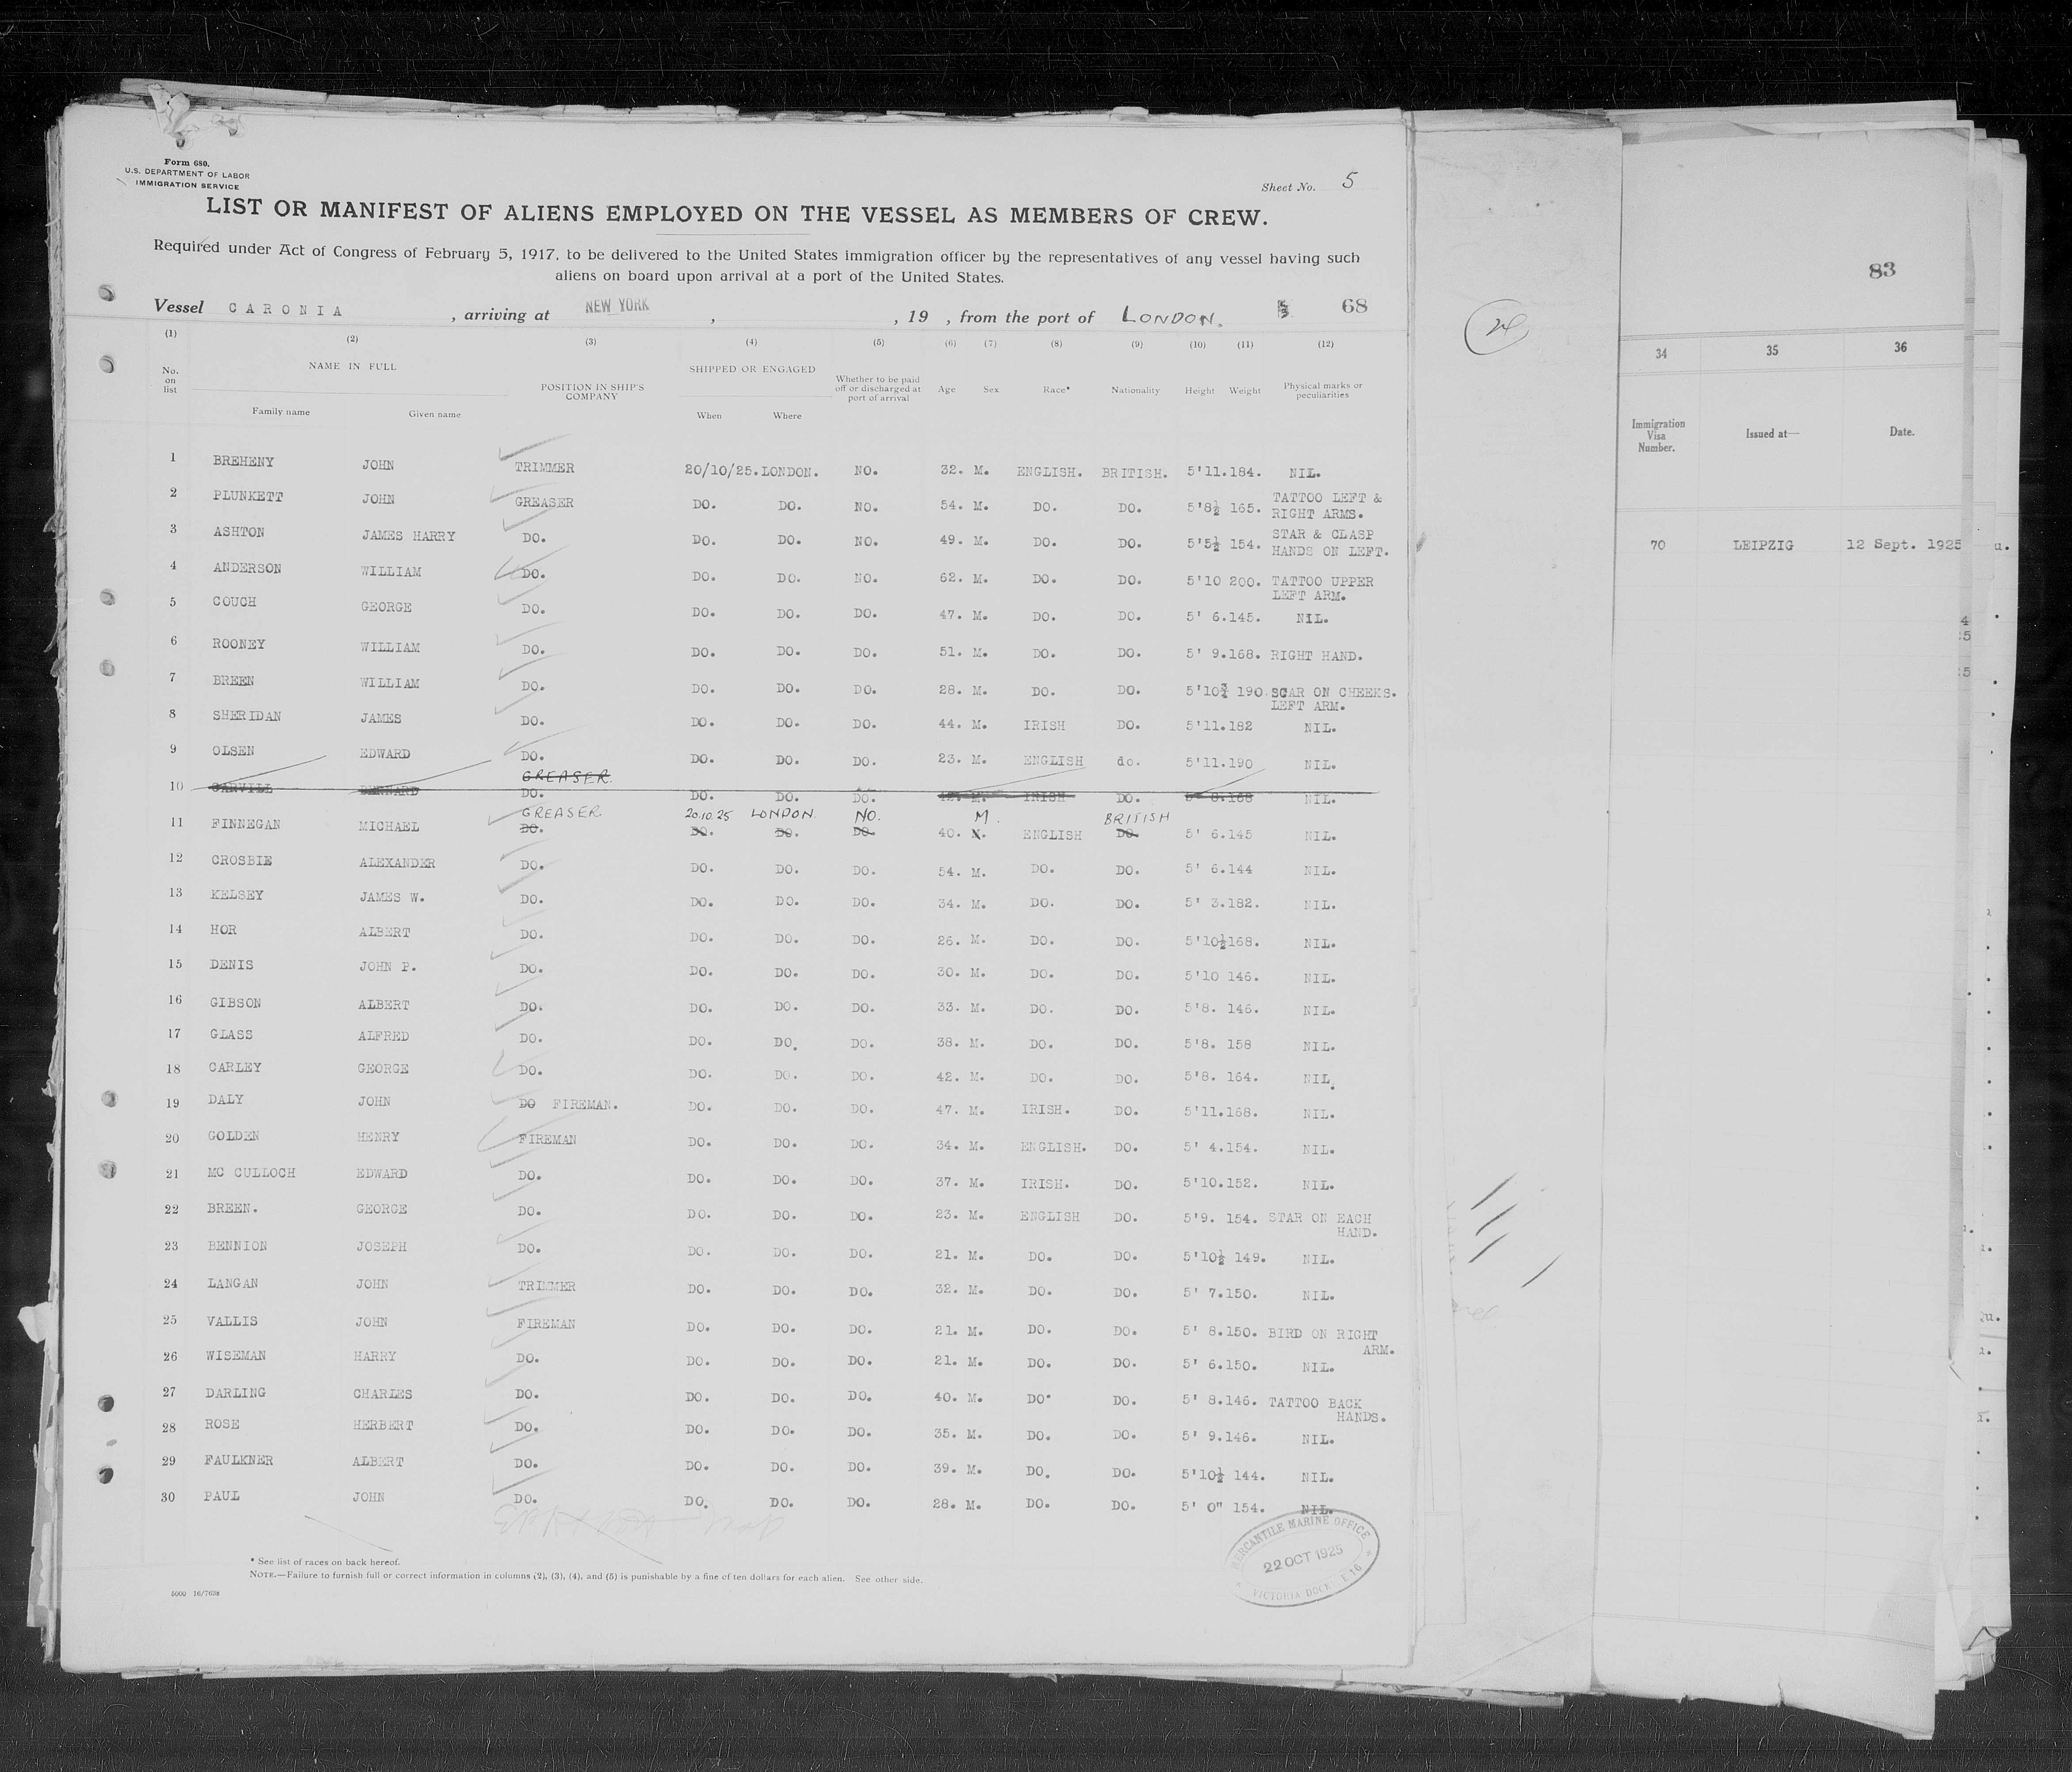 Form 680.
U.S. DEPARTMENT OF LABOR
IMMIGRATION SERVICE
Sheet No. 5
LIST OR MANIFEST OF ALIENS EMPLOYED ON THE VESSEL AS MEMBERS OF CREW.
Required under Act of Congress of February 5, 1917, to be delivered to the United States immigration officer by the representatives of any vessel having such
aliens on board upon arrival at a port of the United States.
Vessel CARONIA , arriving at NEW YORK , , 19 , from the port of LONDON. 68
(1) (2) (3) (4) (5) (6) (7) (8) (9) (10) (11) (12)
No. on list NAME IN FULL Family name Given name POSITION IN SHIP'S COMPANY SHIPPED OR ENGAGED When Where Whether to be paid off or discharged at port of arrival Age Sex Race* Nationality Height Weight Physical marks or peculiarities
1 BREHENY JOHN TRIMMER 20/10/25. LONDON. NO. 32. M. ENGLISH. BRITISH. 5'11. 184. NIL.
2 PLUNKETT JOHN GREASER DO. DO. NO. 54. M. DO. DO. 5'8½ 165. TATTOO LEFT & RIGHT ARMS.
3 ASHTON JAMES HARRY DO. DO. DO. NO. 49. M. DO. DO. 5'5½ 154. STAR & CLASP HANDS ON LEFT.
4 ANDERSON WILLIAM DO. DO. DO. NO. 62. M. DO. DO. 5'10 200. TATTOO UPPER LEFT ARM.
5 COUCH GEORGE DO. DO. DO. DO. 47. M. DO. DO. 5' 6. 145. NIL.
6 ROONEY WILLIAM DO. DO. DO. DO. 51. M. DO. DO. 5' 9. 168. RIGHT HAND.
7 BREEN WILLIAM DO. DO. DO. DO. 28. M. DO. DO. 5'10¾ 190. SCAR ON CHEEKS. LEFT ARM.
8 SHERIDAN JAMES DO. DO. DO. DO. 44. M. IRISH DO. 5'11. 182 NIL.
9 OLSEN EDWARD DO. DO. DO. DO. 23. M. ENGLISH do. 5'11. 190 NIL.
GREASER.
10 CARVILL BERNARD DO. DO. DO. DO. M. IRISH DO. 5' 8. 168 NIL.
GREASER 20.10.25 LONDON. NO. M. BRITISH
11 FINNEGAN MICHAEL DO. DO. DO. DO. 40. ENGLISH DO. 5' 6. 145 NIL.
12 CROSBIE ALEXANDER DO. DO. DO. DO. 54. M. DO. DO. 5' 6. 144 NIL.
13 KELSEY JAMES W. DO. DO. DO. DO. 34. M. DO. DO. 5' 3. 182. NIL.
14 HOR ALBERT DO. DO. DO. DO. 26. M. DO. DO. 5'10½ 168. NIL.
15 DENIS JOHN P. DO. DO. DO. DO. 30. M. DO. DO. 5'10 146. NIL.
16 GIBSON ALBERT DO. DO. DO. DO. 33. M. DO. DO. 5'8. 146. NIL.
17 GLASS ALFRED DO. DO. DO. DO. 38. M. DO. DO. 5'8. 158 NIL.
18 CARLEY GEORGE DO. DO. DO. DO. 42. M. DO. DO. 5'8. 164. NIL.
19 DALY JOHN DO FIREMAN. DO. DO. DO. 47. M. IRISH. DO. 5'11. 168. NIL.
20 GOLDEN HENRY FIREMAN DO. DO. DO. 34. M. ENGLISH. DO. 5' 4. 154. NIL.
21 MC CULLOCH EDWARD DO. DO. DO. DO. 37. M. IRISH. DO. 5'10. 152. NIL.
22 BREEN. GEORGE DO. DO. DO. DO. 23. M. ENGLISH DO. 5'9. 154. STAR ON EACH HAND.
23 BENNION JOSEPH DO. DO. DO. DO. 21. M. DO. DO. 5'10½ 149. NIL.
24 LANGAN JOHN TRIMMER DO. DO. DO. 32. M. DO. DO. 5' 7. 150. NIL.
25 VALLIS JOHN FIREMAN DO. DO. DO. 21. M. DO. DO. 5' 8. 150. BIRD ON RIGHT ARM.
26 WISEMAN HARRY DO. DO. DO. DO. 21. M. DO. DO. 5' 6. 150. NIL.
27 DARLING CHARLES DO. DO. DO. DO. 40. M. DO. DO. 5' 8. 146. TATTOO BACK HANDS.
28 ROSE HERBERT DO. DO. DO. DO. 35. M. DO. DO. 5' 9. 146. NIL.
29 FAULKNER ALBERT DO. DO. DO. DO. 39. M. DO. DO. 5'10½ 144. NIL.
30 PAUL JOHN DO. DO. DO. DO. 28. M. DO. DO. 5' 0" 154. NIL.
MERCANTILE MARINE OFFICE
22 OCT 1925
VICTORIA DOCK E 16
* See list of races on back hereof.
NOTE.—Failure to furnish full or correct information in columns (2), (3), (4), and (5) is punishable by a fine of ten dollars for each alien. See other side.
5000 16/7638
24
83
34 35 36
Immigration Visa Number. Issued at— Date.
70 LEIPZIG 12 Sept. 1925